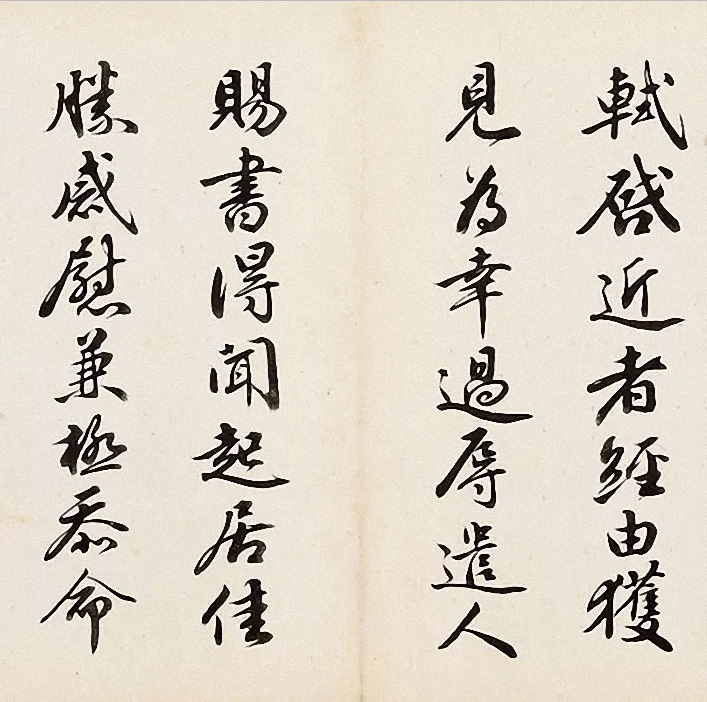 軾啓近者經由獲
見為幸過辱遣人
賜書得聞起居佳
勝感慰兼極忝命